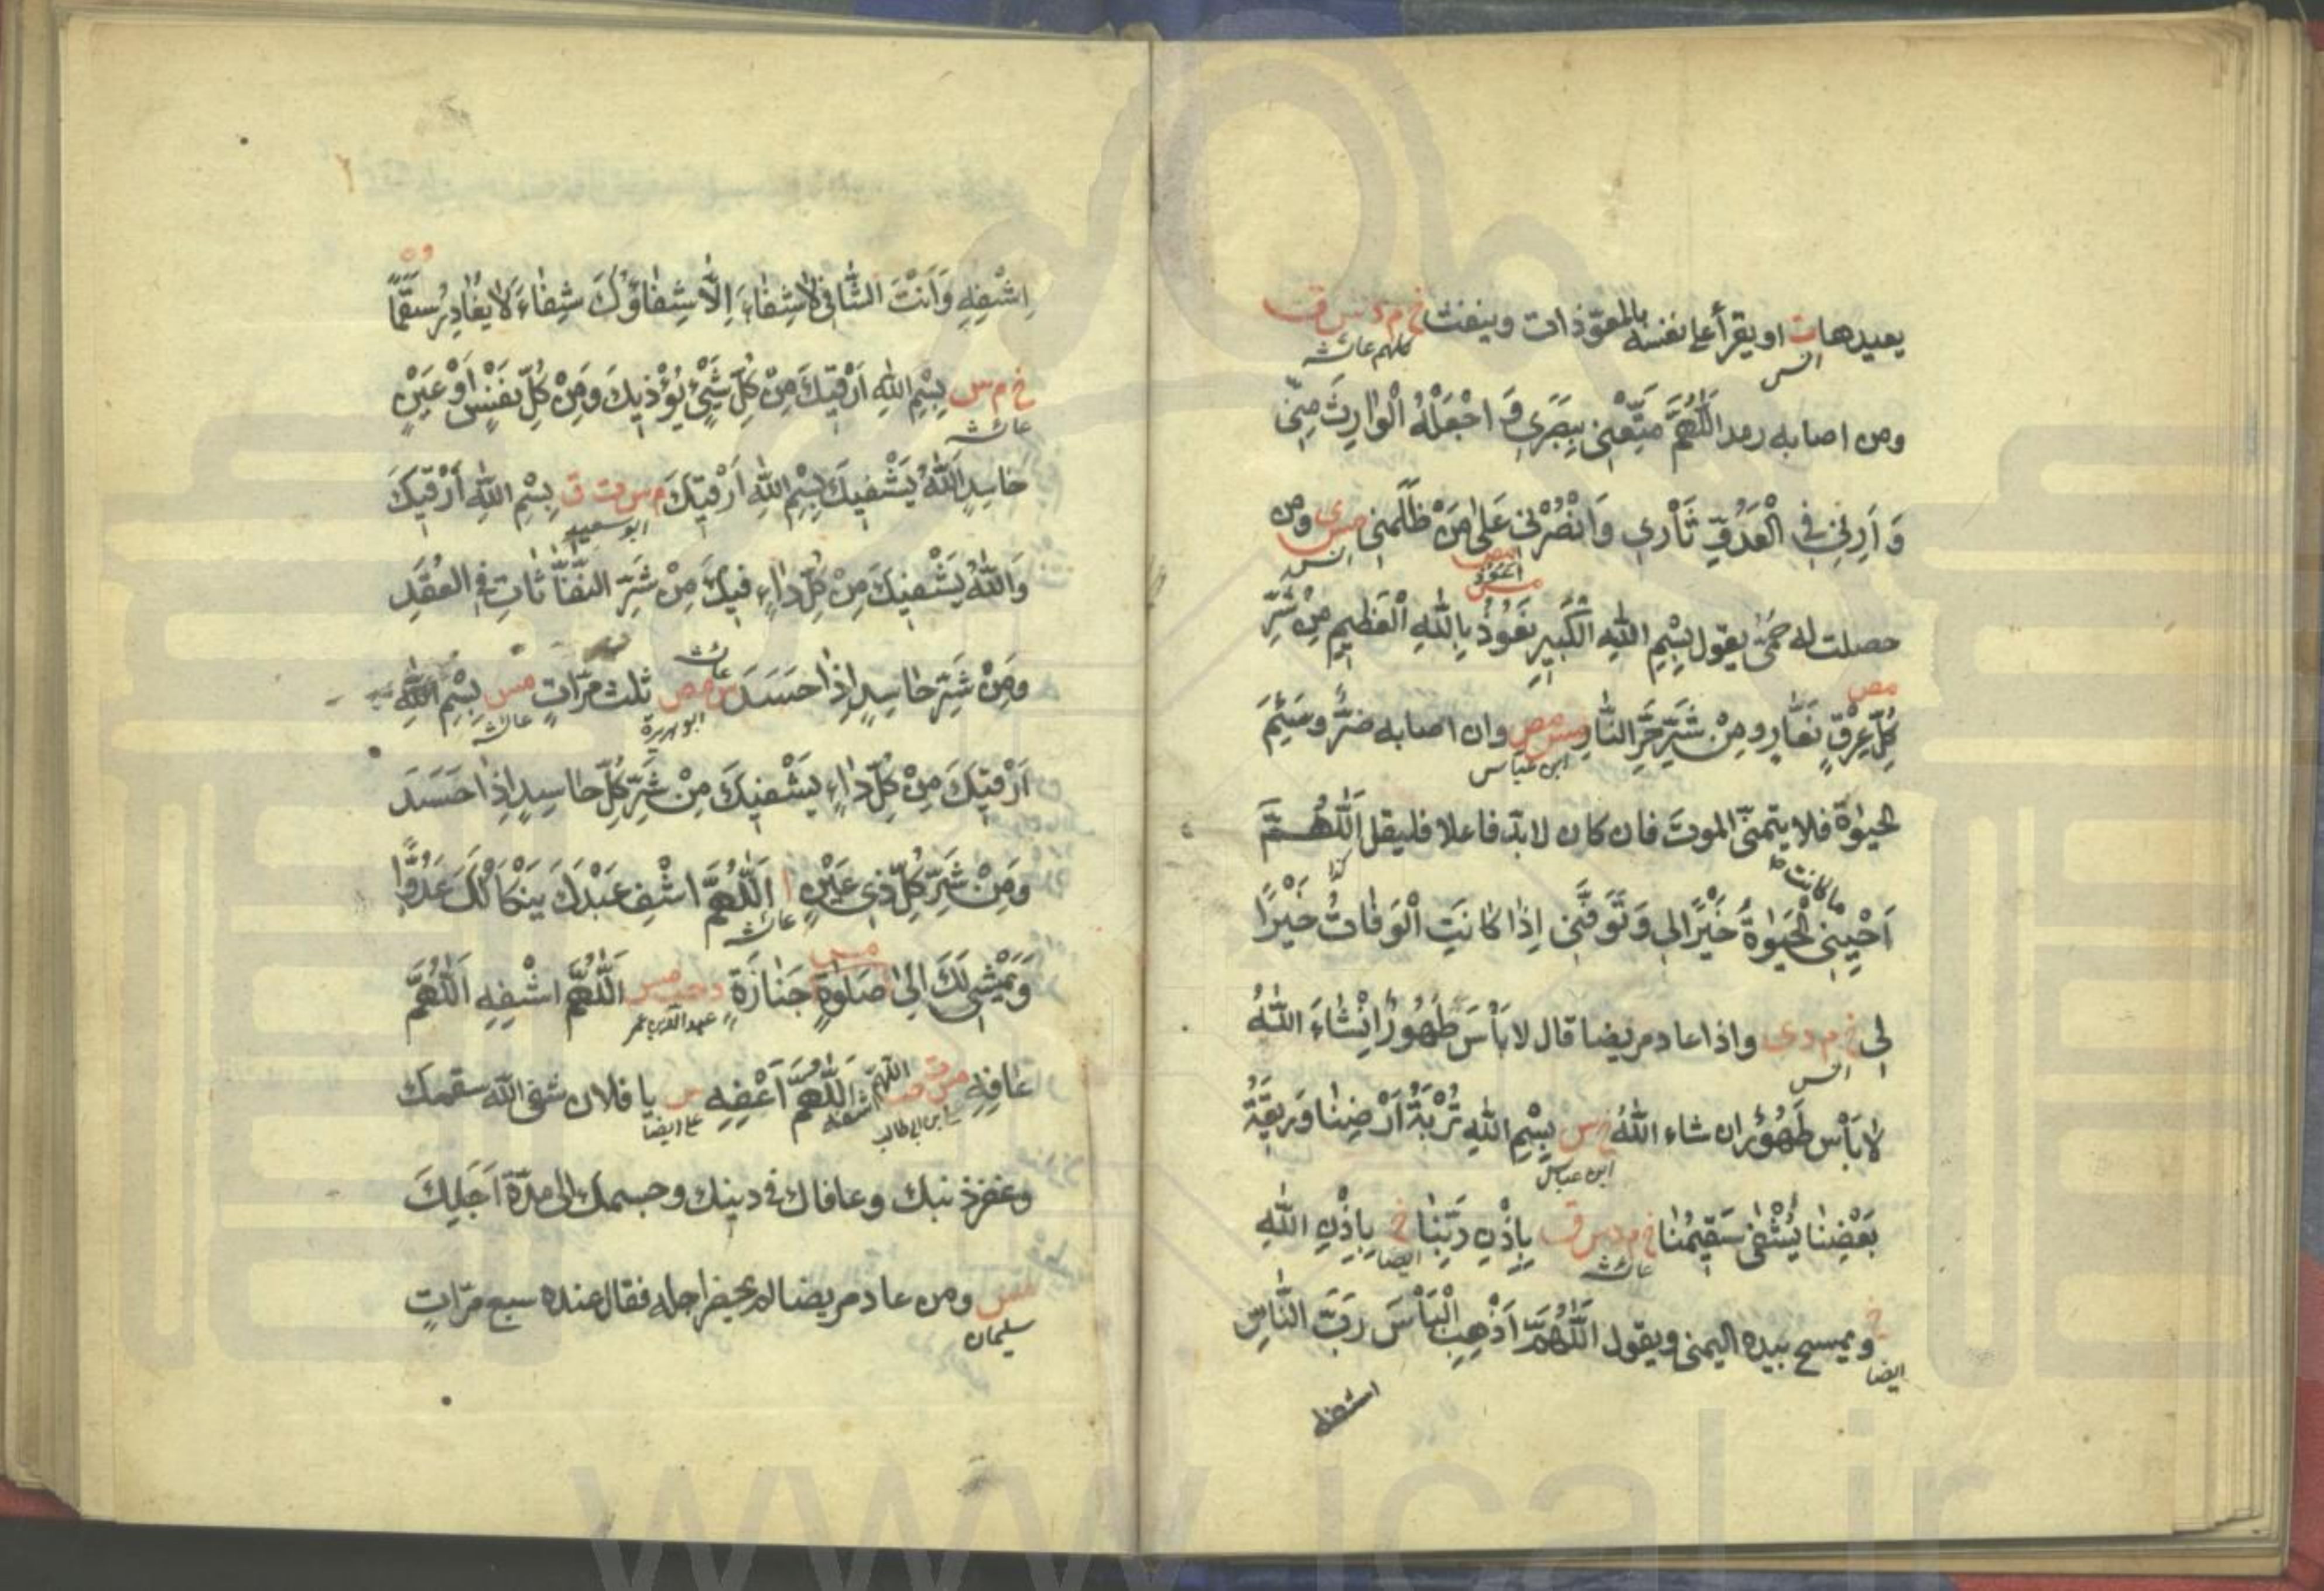 يعيدها ت او يقرأ على نفسه بالمعوّذات وينفث خ م د س ق ت
انس
كلهم عائشة
ومن اصابه رمد اَللّٰهُمَّ مَتِّعْنِي بِبَصَرِي وَ اجْعَلْهُ الْوَارِثَ مِنِّي
وَ اَرِنِي فِي الْعَدُوِّ ثَأْرِي وَ انْصُرْنِي عَلٰى مَنْ ظَلَمَنِي مس ى ومن
انس
حصلت له حمّى يقول بِسْمِ اللّٰهِ الْكَبِيرِ نَعُوذُ بِاللّٰهِ الْعَظِيمِ مِنْ شَرِّ
مص
اعوذ
مس
كُلِّ عِرْقٍ نَعَّارٍ و مِنْ شَرِّ حَرِّ النَّارِ مس مص وان اصابه ضرّ وسَئِمَ
مص
ابن عباس
الحيٰوة فلا يتمنّى الموت فان كان لا بدّ فاعلا فليقل اَللّٰهُمَّ
اَحْيِنِي الْحَيٰوةُ خَيْرًا لي وَ تَوَفَّنِي اِذَا كَانَتِ الْوَفَاتُ خَيْرًا
ما كانت
لي خ م د ى واذا عاد مريضا قال لا بَأْسَ طَهُورٌ اِنْشَاءَ اللّٰهُ
انس
لا بَأْس طَهُورٌ ان شاء اللّٰهُ خ س بِسْمِ اللّٰهِ تُرْبَةُ اَرْضِنَا وَ رِيقَةُ
ابن عباس
بَعْضِنَا يُشْفٰى سَقِيمُنَا خ م د س ق بِاِذْنِ رَبِّنَا خ بِاِذْنِ اللّٰهِ
عائشة
ايضا
خ ويمسح بيده اليمنى ويقول اَللّٰهُمَّ اَذْهِبِ الْبَأْسَ رَبَّ النَّاسِ
ايضا
اشفه
اِشْفِهِ وَ اَنْتَ الشَّافِي لا شِفَاءَ اِلَّا شِفَاؤُكَ شِفَاءً لا يُغَادِرُ سَقَمًا
خ م س بِسْمِ اللّٰهِ اَرْقِيكَ مِنْ كُلِّ شَيْءٍ يُؤْذِيكَ وَ مِنْ كُلِّ نَفْسٍ اَوْ عَيْنٍ
عائشة
حَاسِدٍ اَللّٰهُ يَشْفِيكَ بِسْمِ اللّٰهِ اَرْقِيكَ م س ت ق بِسْمِ اللّٰهِ اَرْقِيكَ
ابو سعيد
وَ اللّٰهُ يَشْفِيكَ مِنْ كُلِّ دَاءٍ فِيكَ مِنْ شَرِّ النَّفَّاثَاتِ فِي الْعُقَدِ
ومِنْ شَرِّ حَاسِدٍ اِذَا حَسَدَ س مص ثلث مرّات مس بِسْمِ اللّٰهِ
ابو هريرة
عائشة
اَرْقِيكَ مِنْ كُلِّ دَاءٍ يَشْفِيكَ مِنْ شَرِّ كُلِّ حَاسِدٍ اِذَا حَسَدَ
وَ مِنْ شَرِّ كُلِّ ذِي عَيْنٍ ا اَللّٰهُمَّ اشْفِ عَبْدَكَ يَنْكَأْ لَكَ عَدُوًّا
عائشة
وَ يَمْشِي لَكَ اِلٰى صَلٰوةِ جَنَازَةٍ د حب مس اَللّٰهُمَّ اشْفِهِ اَللّٰهُمَّ
مس
عبد الله بن عمر
عَافِهِ مس ت حب اَللّٰهُمَّ اَعْفِهِ س يا فلان شفى الله سقمك
اللّهمّ اشفه
علي بن ابي طالب
علي ايضا
وغفر ذنبك وعافاك في دينك وجسمك الى مدّة اَجَلِكَ
مس ومن عاد مريضا لم يحضر اجله فقال عنده سبع مرّاتٍ
سليمان
www.ical.ir